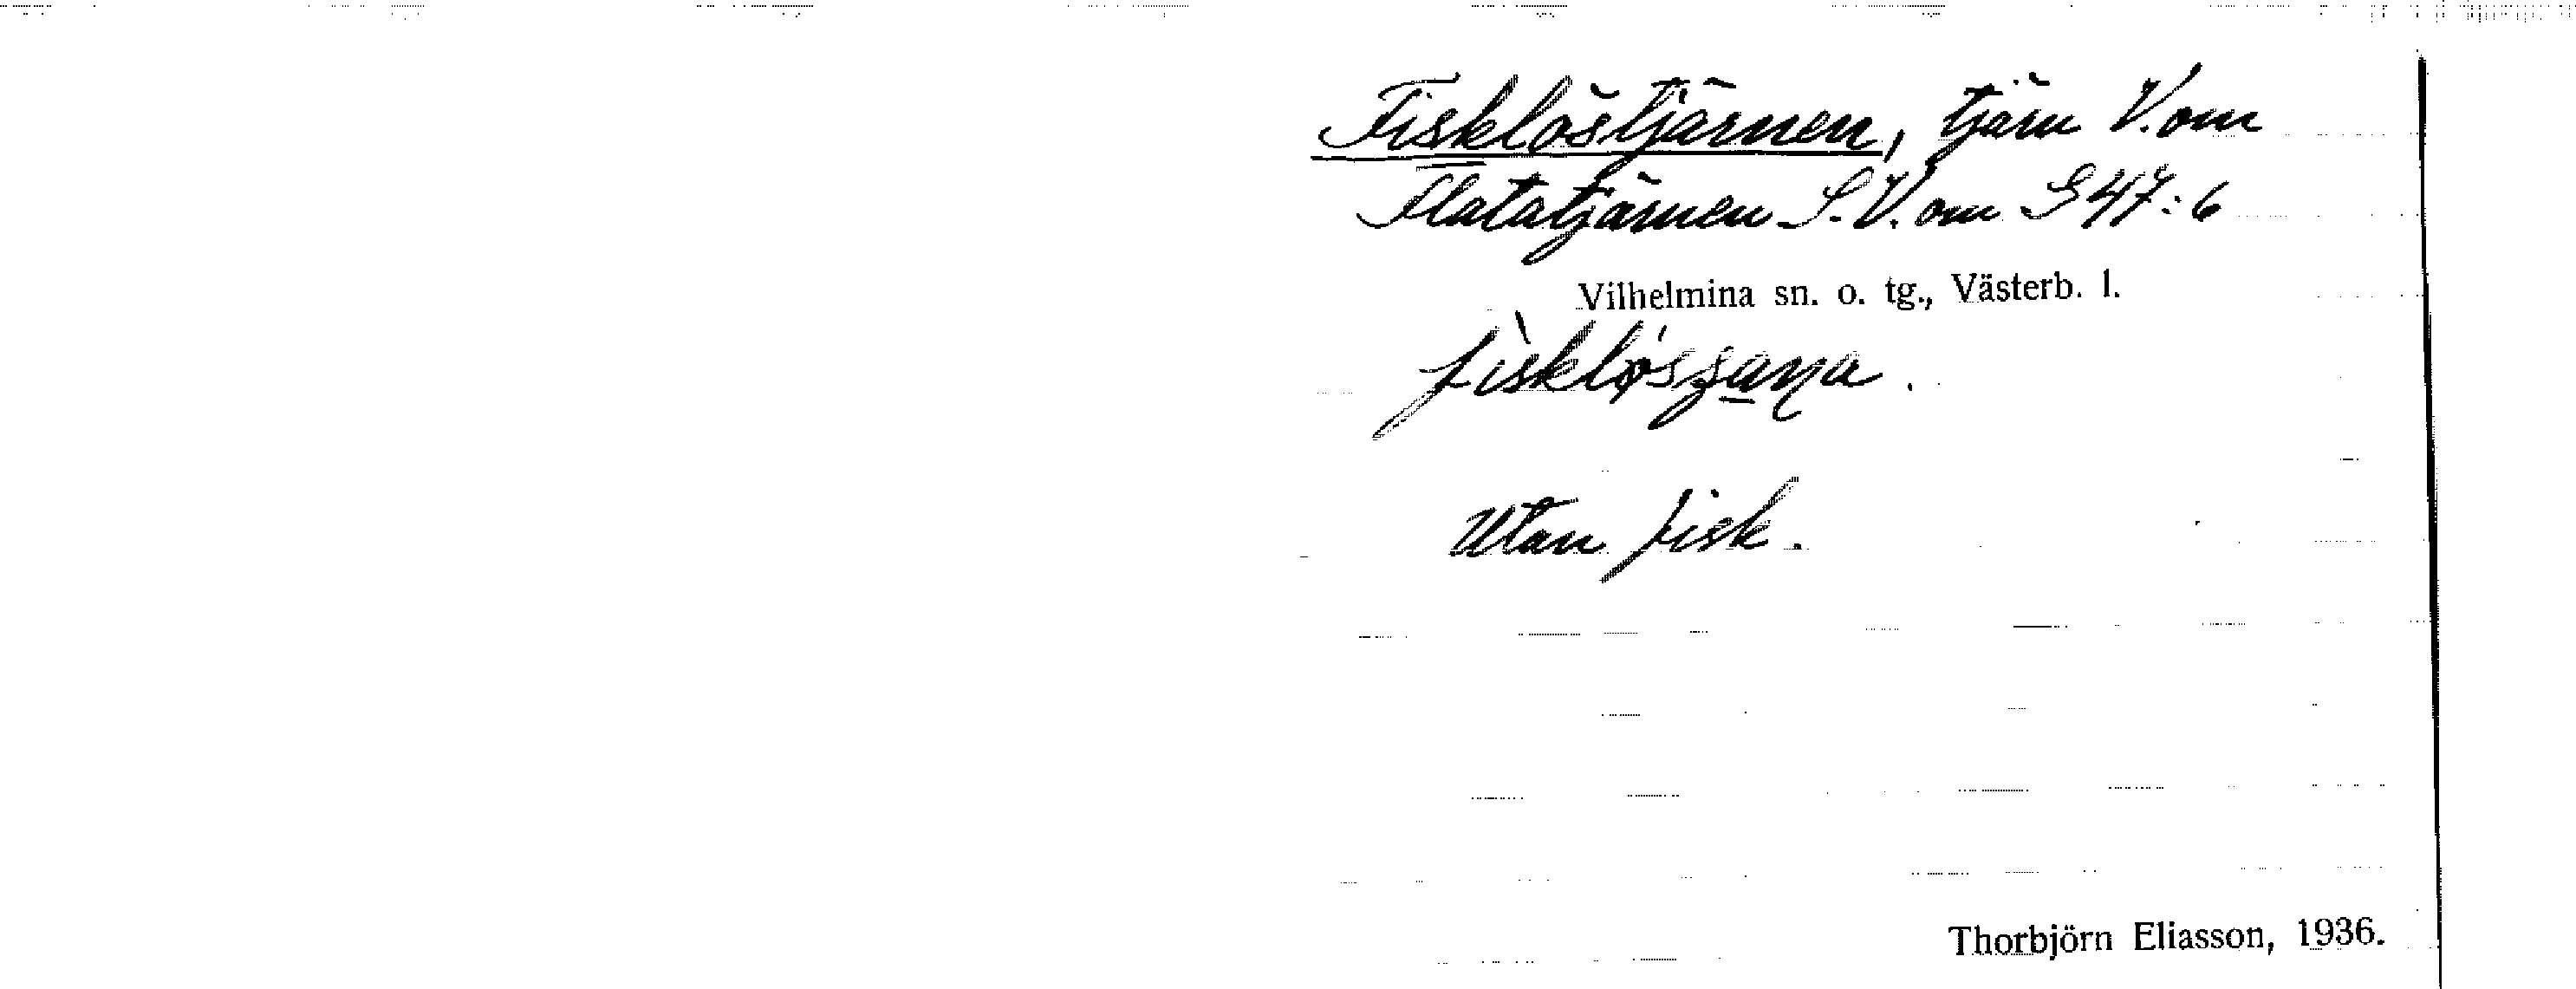 Fisklöstjärnen, tjärn V. om
Flatatjärnen S.V. om G 47:6
Vilhelmina sn. o. tg., Västerb. l.
Utan fisk.
Thorbjörn Eliasson, 1936.